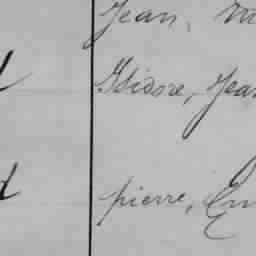 Jean,
Isidore, Jea
pierre, Em